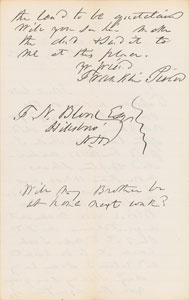 the land to be quitclaimed
Will you so kind make
the deed & send it to
me at this place.
Yr friend
Franklin Pierce
F. N. Blood Esq
Hillsboro
N.H.
Will my Brother be
at home next week?